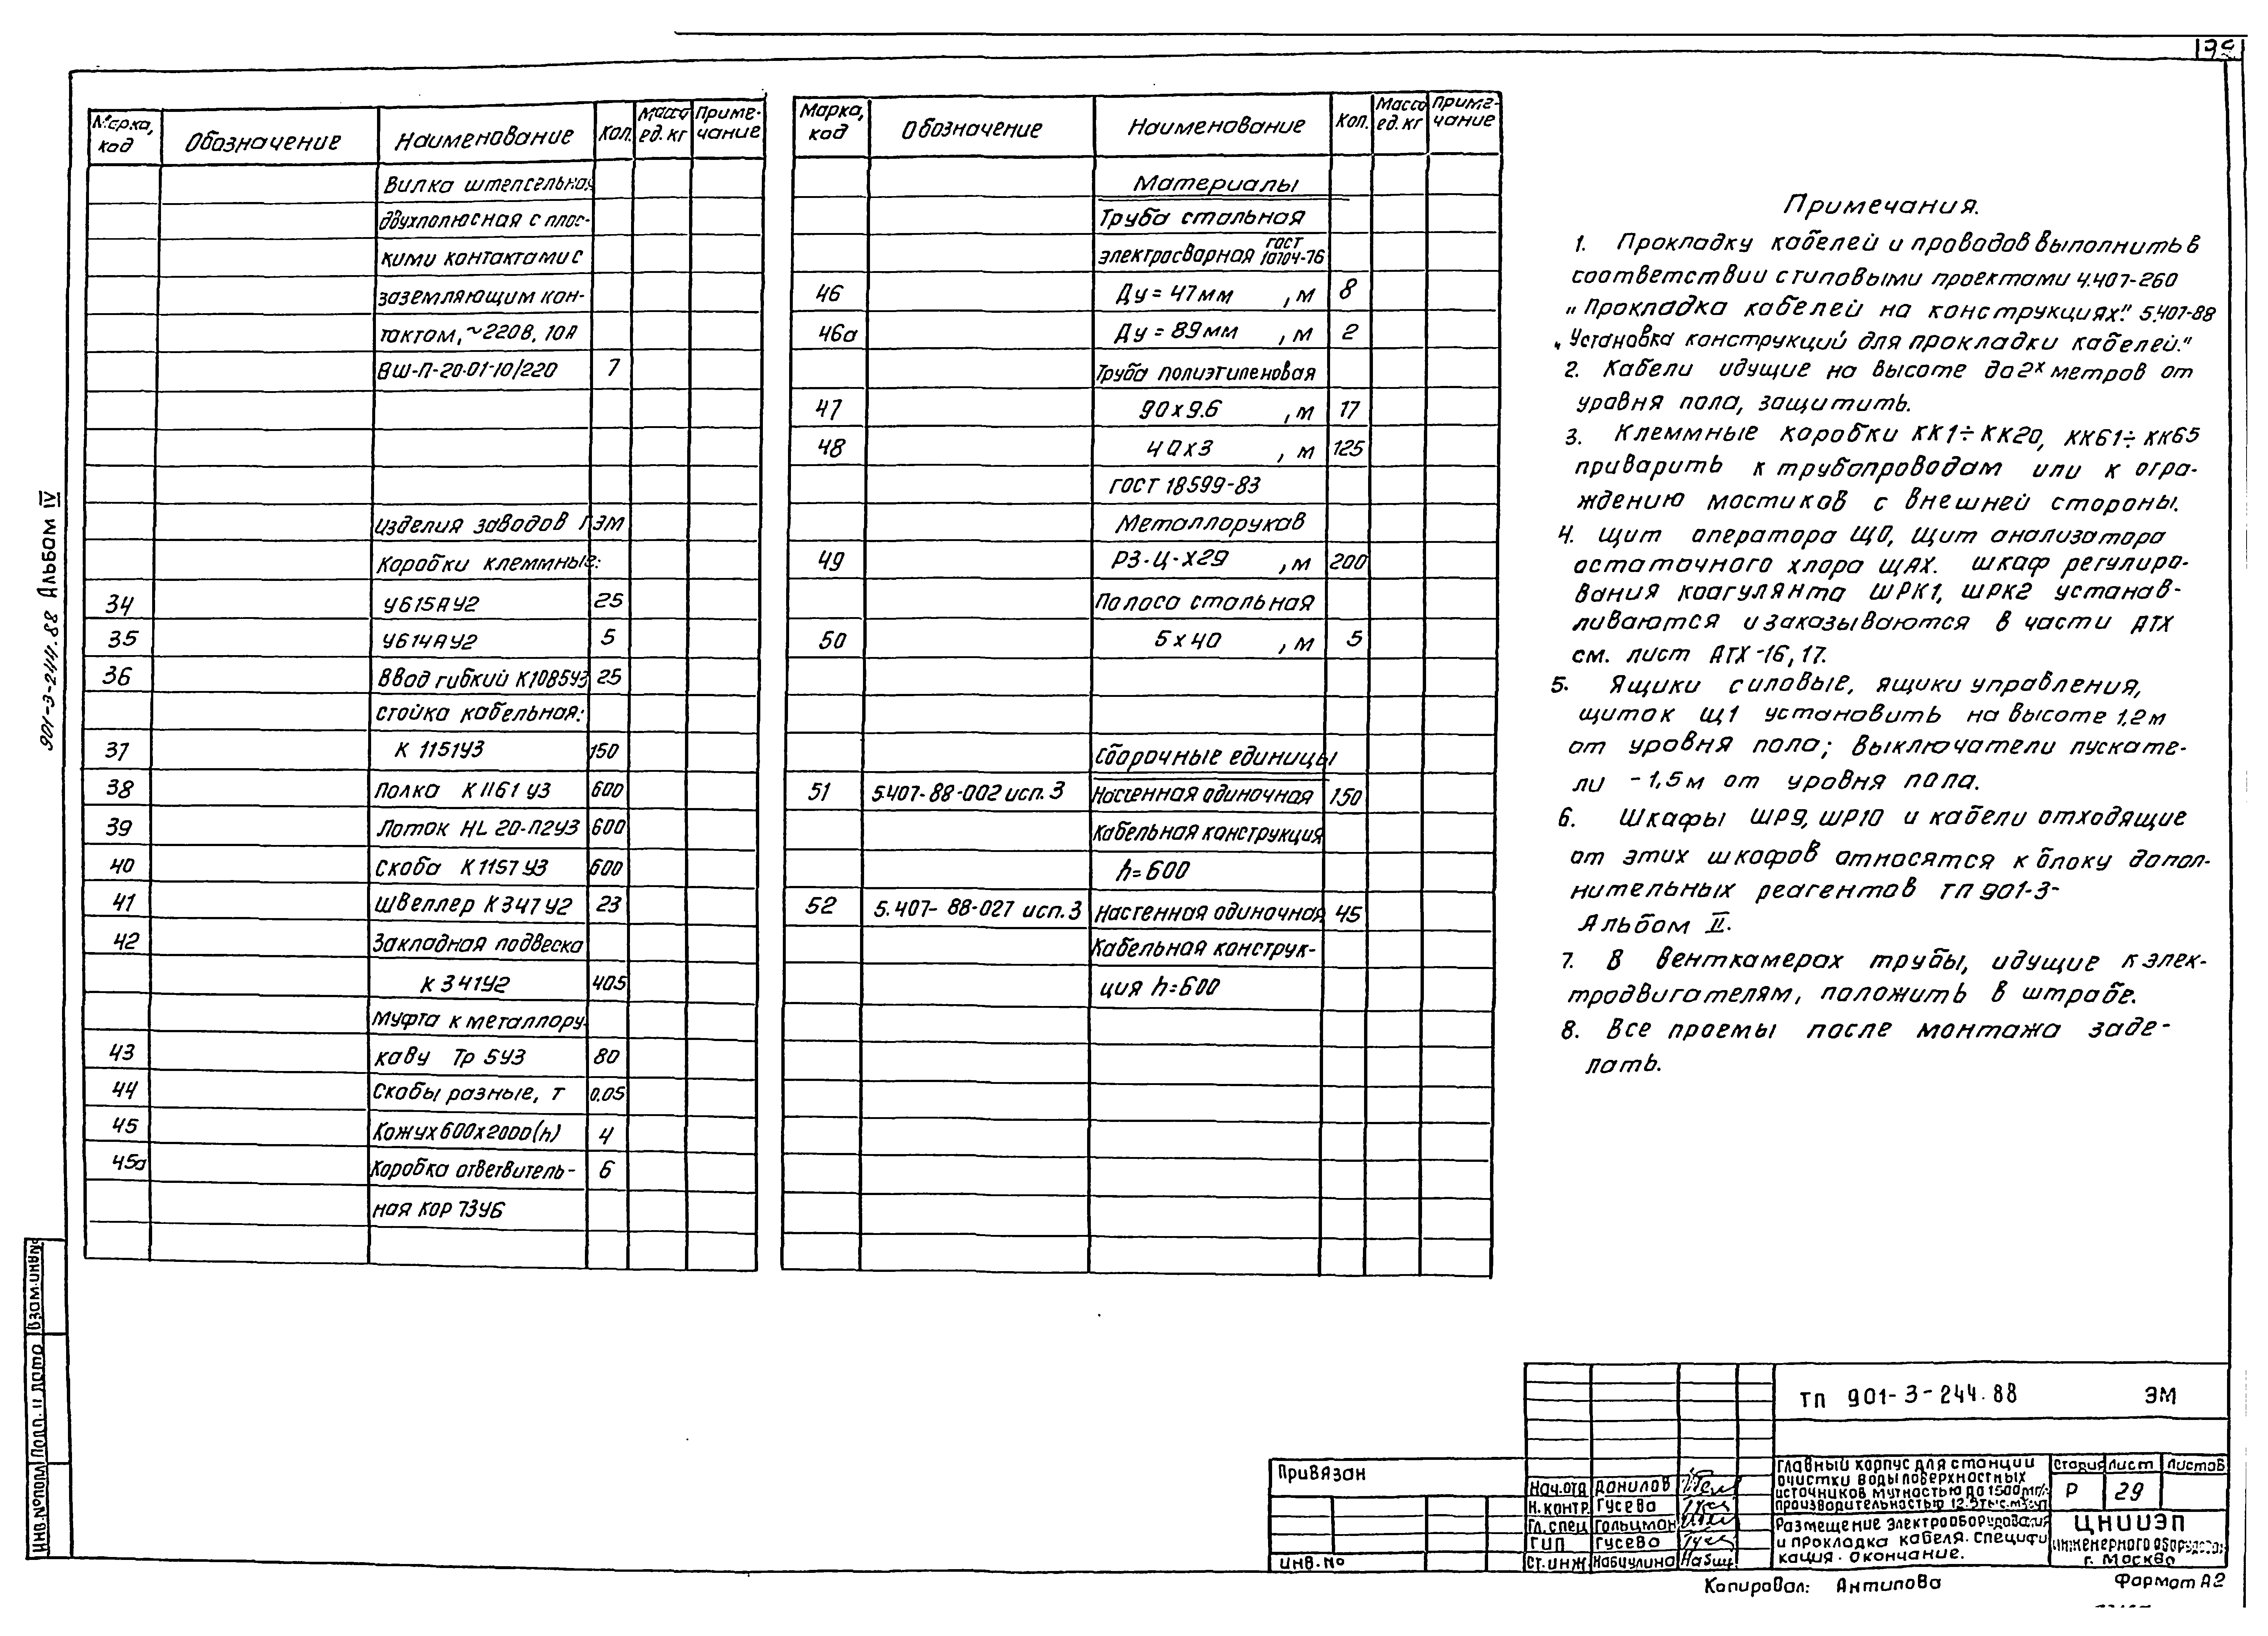 Марка, код Обозначение Наименование Кол. Масса ед. кг Приме-чание
Вилка штепсельная
двухполюсная с плос-
кими контактами с
заземляющим кон-
тактом, ~220В, 10А
ВШ-П-20-01-10/220 7
Изделия заводов ГЭМ
Коробки клеммные:
34 У615АУ2 25
35 У614АУ2 5
36 Ввод гибкий К1085У3 25
стойка кабельная:
37 К 1151У3 150
38 Полка К 1161 У3 600
39 Лоток НL 20-П2У3 600
40 Скоба К 1157 У3 600
41 Швеллер К 347 У2 23
42 Закладная подвеска
К 341У2 405
Муфта к металлору-
43 каву Тр 5У3 80
44 Скобы разные, т 0.05
45 Кожух 600х2000(h) 4
45а Коробка ответвитель- 6
ная КОР 73У6
Марка, код Обозначение Наименование Кол. Масса ед. кг Приме-чание
Материалы
Труба стальная
электросварная ГОСТ 10704-76
46 Ду = 47мм , м 8
46а Ду = 89мм , м 2
Труба полиэтиленовая
47 90 х 9.6 , м 17
48 40х3 , м 125
ГОСТ 18599-83
Металлорукав
49 РЗ-Ц-Х29 , м 200
Полоса стальная
50 5 х 40 , м 5
Сборочные единицы
51 5.407-88-002 исп. 3 Настенная одиночная 150
Кабельная конструкция
h=600
52 5.407-88-027 исп. 3 Настенная одиночная 45
Кабельная конструк-
ция h=600
Примечания.
1. Прокладку кабелей и проводов выполнить в
соответствии с типовыми проектами 4.407-260
„Прокладка кабелей на конструкциях". 5.407-88
„Установка конструкций для прокладки кабелей."
2. Кабели идущие на высоте до 2х метров от
уровня пола, защитить.
3. Клеммные коробки КК1÷КК20, КК61÷КК65
приварить к трубопроводам или к огра-
ждению мостиков с внешней стороны.
4. Щит оператора ЩО, щит анализатора
остаточного хлора ЩАХ. шкаф регулиро-
вания коагулянта ШРК1, ШРК2 устанав-
ливаются и заказываются в части АТХ
см. лист АТХ-16, 17.
5. Ящики силовые, ящики управления,
щиток Щ1 установить на высоте 1,2м
от уровня пола; Выключатели пускате-
ли - 1,5м от уровня пола.
6. Шкафы ШР9, ШР10 и кабели отходящие
от этих шкафов относятся к блоку допол-
нительных реагентов ТП 901-3-
Альбом II.
7. В венткамерах трубы, идущие к элек-
тродвигателям, положить в штрабе.
8. Все проемы после монтажа заде-
лать.
901-3-244.88 Альбом IV
Инв. № подл Подп. и дата Взам. инв. №
ТП 901-3-244.88 ЭМ
Привязан
Инв. №
Нач. отд Данилов
Н. контр. Гусева
Гл. спец Гольцман
ГИП Гусева
Ст. инж Набиулина
Главный корпус для станции
очистки воды поверхностных
источников мутностью до 1500мг/л
производительностью
Стадия Лист Листов
Р 29
Размещение электрооборудования
и прокладка кабеля. Специфи
кация. Окончание.
ЦНИИЭП
инженерного оборудован
г. Москва
Копировал: Антипова Формат А2